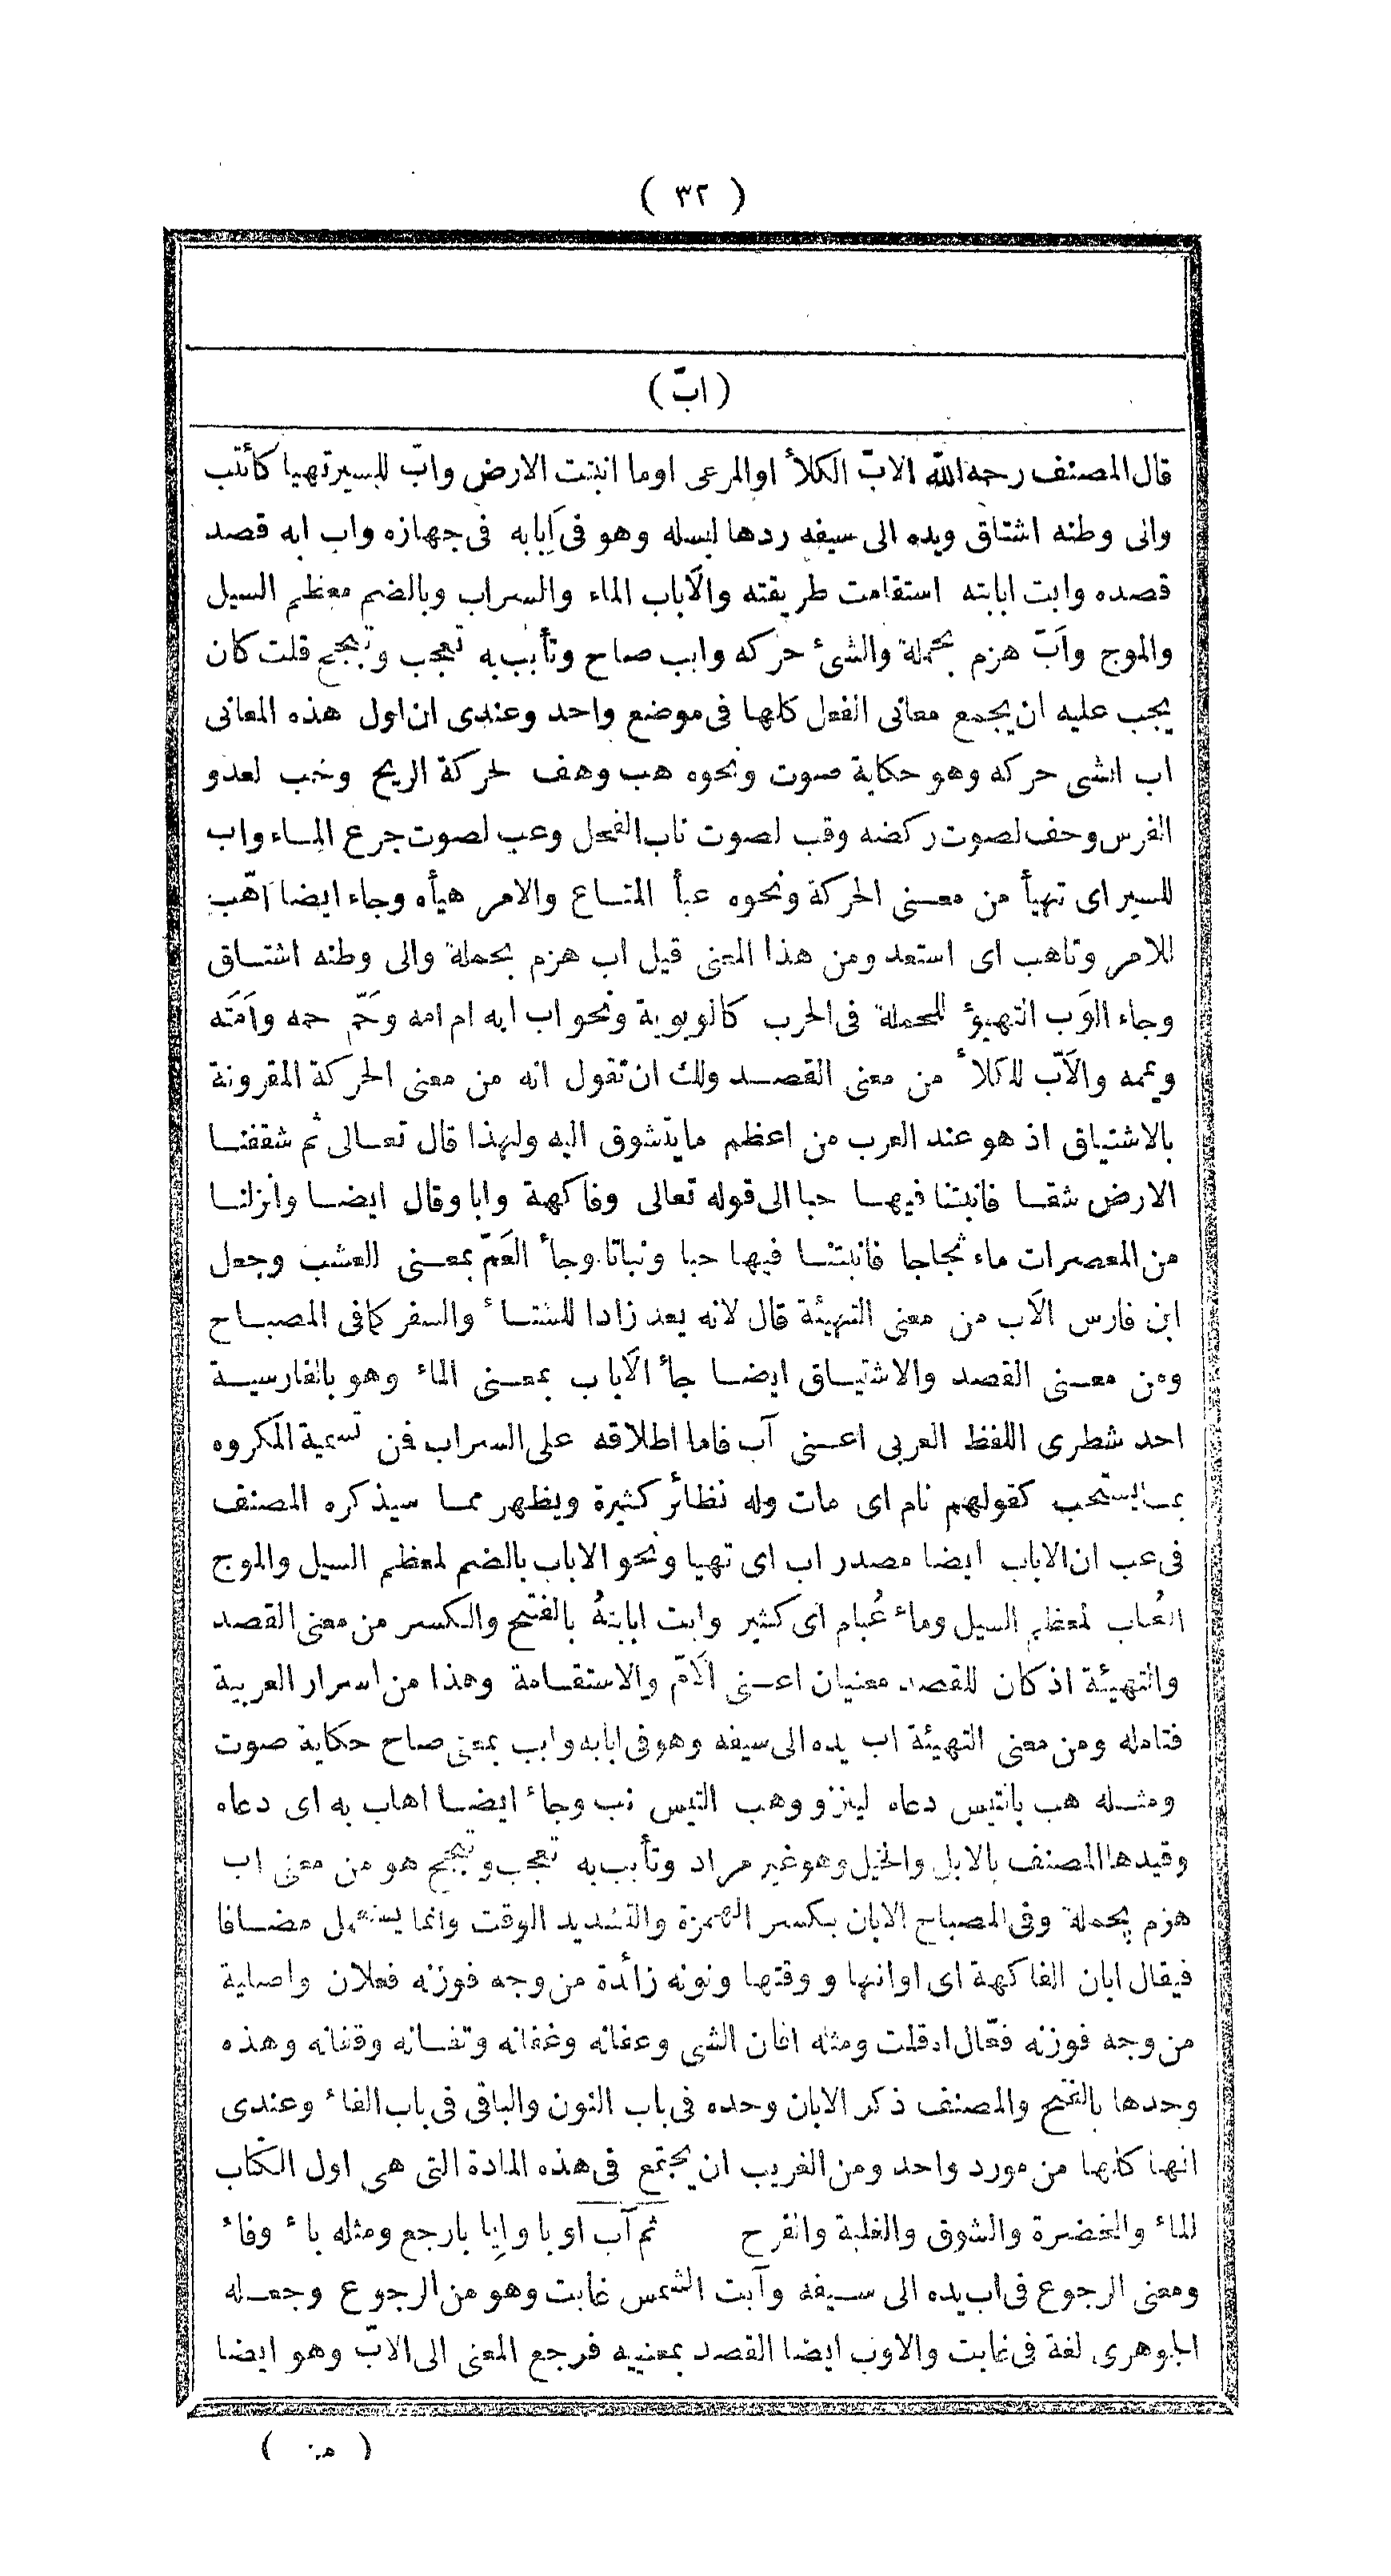 ( ٣٢ )
( ابّ )
قال المصنف رحمه الله الابّ الكلأ او المرعى اوما انبتت الارض وابّ للسيرتهيا كأئتب
والى وطنه اشتاق ويده الى سيفه ردها ليسله وهو فى اَبابه فى جهازه واب ابه قصد
قصده وابت ابابته استقامت طريقته والاَباب الماء والسراب وبالضم معظم السيل
والموج واَبّ هزم بحملة والشئ حركه وابب صاح وتأبب به تعجب وتبجح قلت كان
يجب عليه ان يجمع معانى الفعل كلها فى موضع واحد وعندى ان اول هذه المعانى
اب الشى حركه وهو حكاية صوت ونحوه هب وهف لحركة الريح وخب لعدو
الفرس وحف لصوت ركضه وقب لصوت ناب الفحل وعب لصوت جرع الماء واب
للسير اى تهيأ من معنى الحركة ونحوه عبأ المتاع والامر هيأه وجاء ايضا اَهّب
للامر وتاهب اى استعد ومن هذا المعنى قيل اب هزم بحملة والى وطنه اشتاق
وجاء الوَب التهيؤ للحملة فى الحرب كالوبوبة ونحو اب ابه ام امه وحَمّ حمه واَمَته
ويممه والاَبّ للكلأ من معنى القصد ولك ان تقول انه من معنى الحركة المقرونة
بالاشتياق اذ هو عند العرب من اعظم ما يتشوق اليه ولهذا قال تعالى ثم شققنا
الارض شقا فانبتنا فيها حبا الى قوله تعالى وفاكهة وابا وقال ايضا وانزلنا
من المعصرات ماء ثجاجا فأنبتنا فيها حبا ونباتا وجأ العَمّ بمعنى العشب وجعل
ابن فارس الاَب من معنى التهيئة قال لانه يعد زادا للشتاء والسفر كما فى المصباح
ومن معنى القصد والاشتياق ايضا جأ الاَباب بمعنى الماء وهو بالفارسية
احد شطرى اللفظ العربى اعنى آب فاما اطلاقه على السراب فمن تسمية المكروه
بما يستحب كقولهم نام اى مات وله نظائر كثيرة ويظهر مما سيذكره المصنف
فى عب ان الاباب ايضا مصدر اب اى تهيا ونحو الاباب بالضم لمعظم السيل والموج
العُباب لمعظم السيل وماء عُبام اى كثير وابت ابابتهُ بالفتح والكسر من معنى القصد
والتهيئة اذ كان للقصد معنيان اعنى الاَمّ والاستقامة وهذا من اسرار العربية
فتامله ومن معنى التهيئة اب يده الى سيفه وهو فى ابابه وابب بمعنى صاح حكاية صوت
ومثله هب بالتيس دعاه لينزو وهب التيس نب وجاء ايضا اهاب به اى دعاه
وقيدها المصنف بالابل والخيل وهو غير مراد وتأبب به تعجب وتبجح هو من معنى اب
هزم بحملة وفى المصباح الابان بكسر الهمزة والتشديد الوقت وانما يستعمل مضافا
فيقال ابان الفاكهة اى اوانها ووقتها ونونه زائدة من وجه فوزنه فعلان واصلية
من وجه فوزنه فعّال اد قلت ومثله افان الشى وعفانه وغفانه وتفانه وقفانه وهذه
وحدها بالفتح والمصنف ذكر الابان وحده فى باب النون والباقى فى باب الفاء وعندى
انها كلها من مورد واحد ومن الغريب ان يجتمع فى هذه المادة التى هى اول الكتاب
الماء والخضرة والشوق والغلبة والفرح ثم آب اوبا وايابا رجع ومثله باء وفاء
ومعنى الرجوع فى اب يده الى سيفه وآبت الشمس غابت وهو من الرجوع وجعله
الجوهرى لغة فى غابت والاوب ايضا القصد بمعنييه فرجع المعنى الى الابّ وهو ايضا
( من )